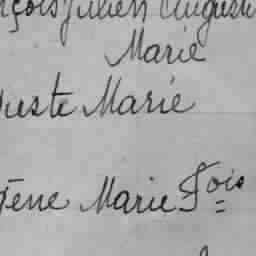 nçois Julien Auguste
Marie
uste Marie
gène Marie Fois